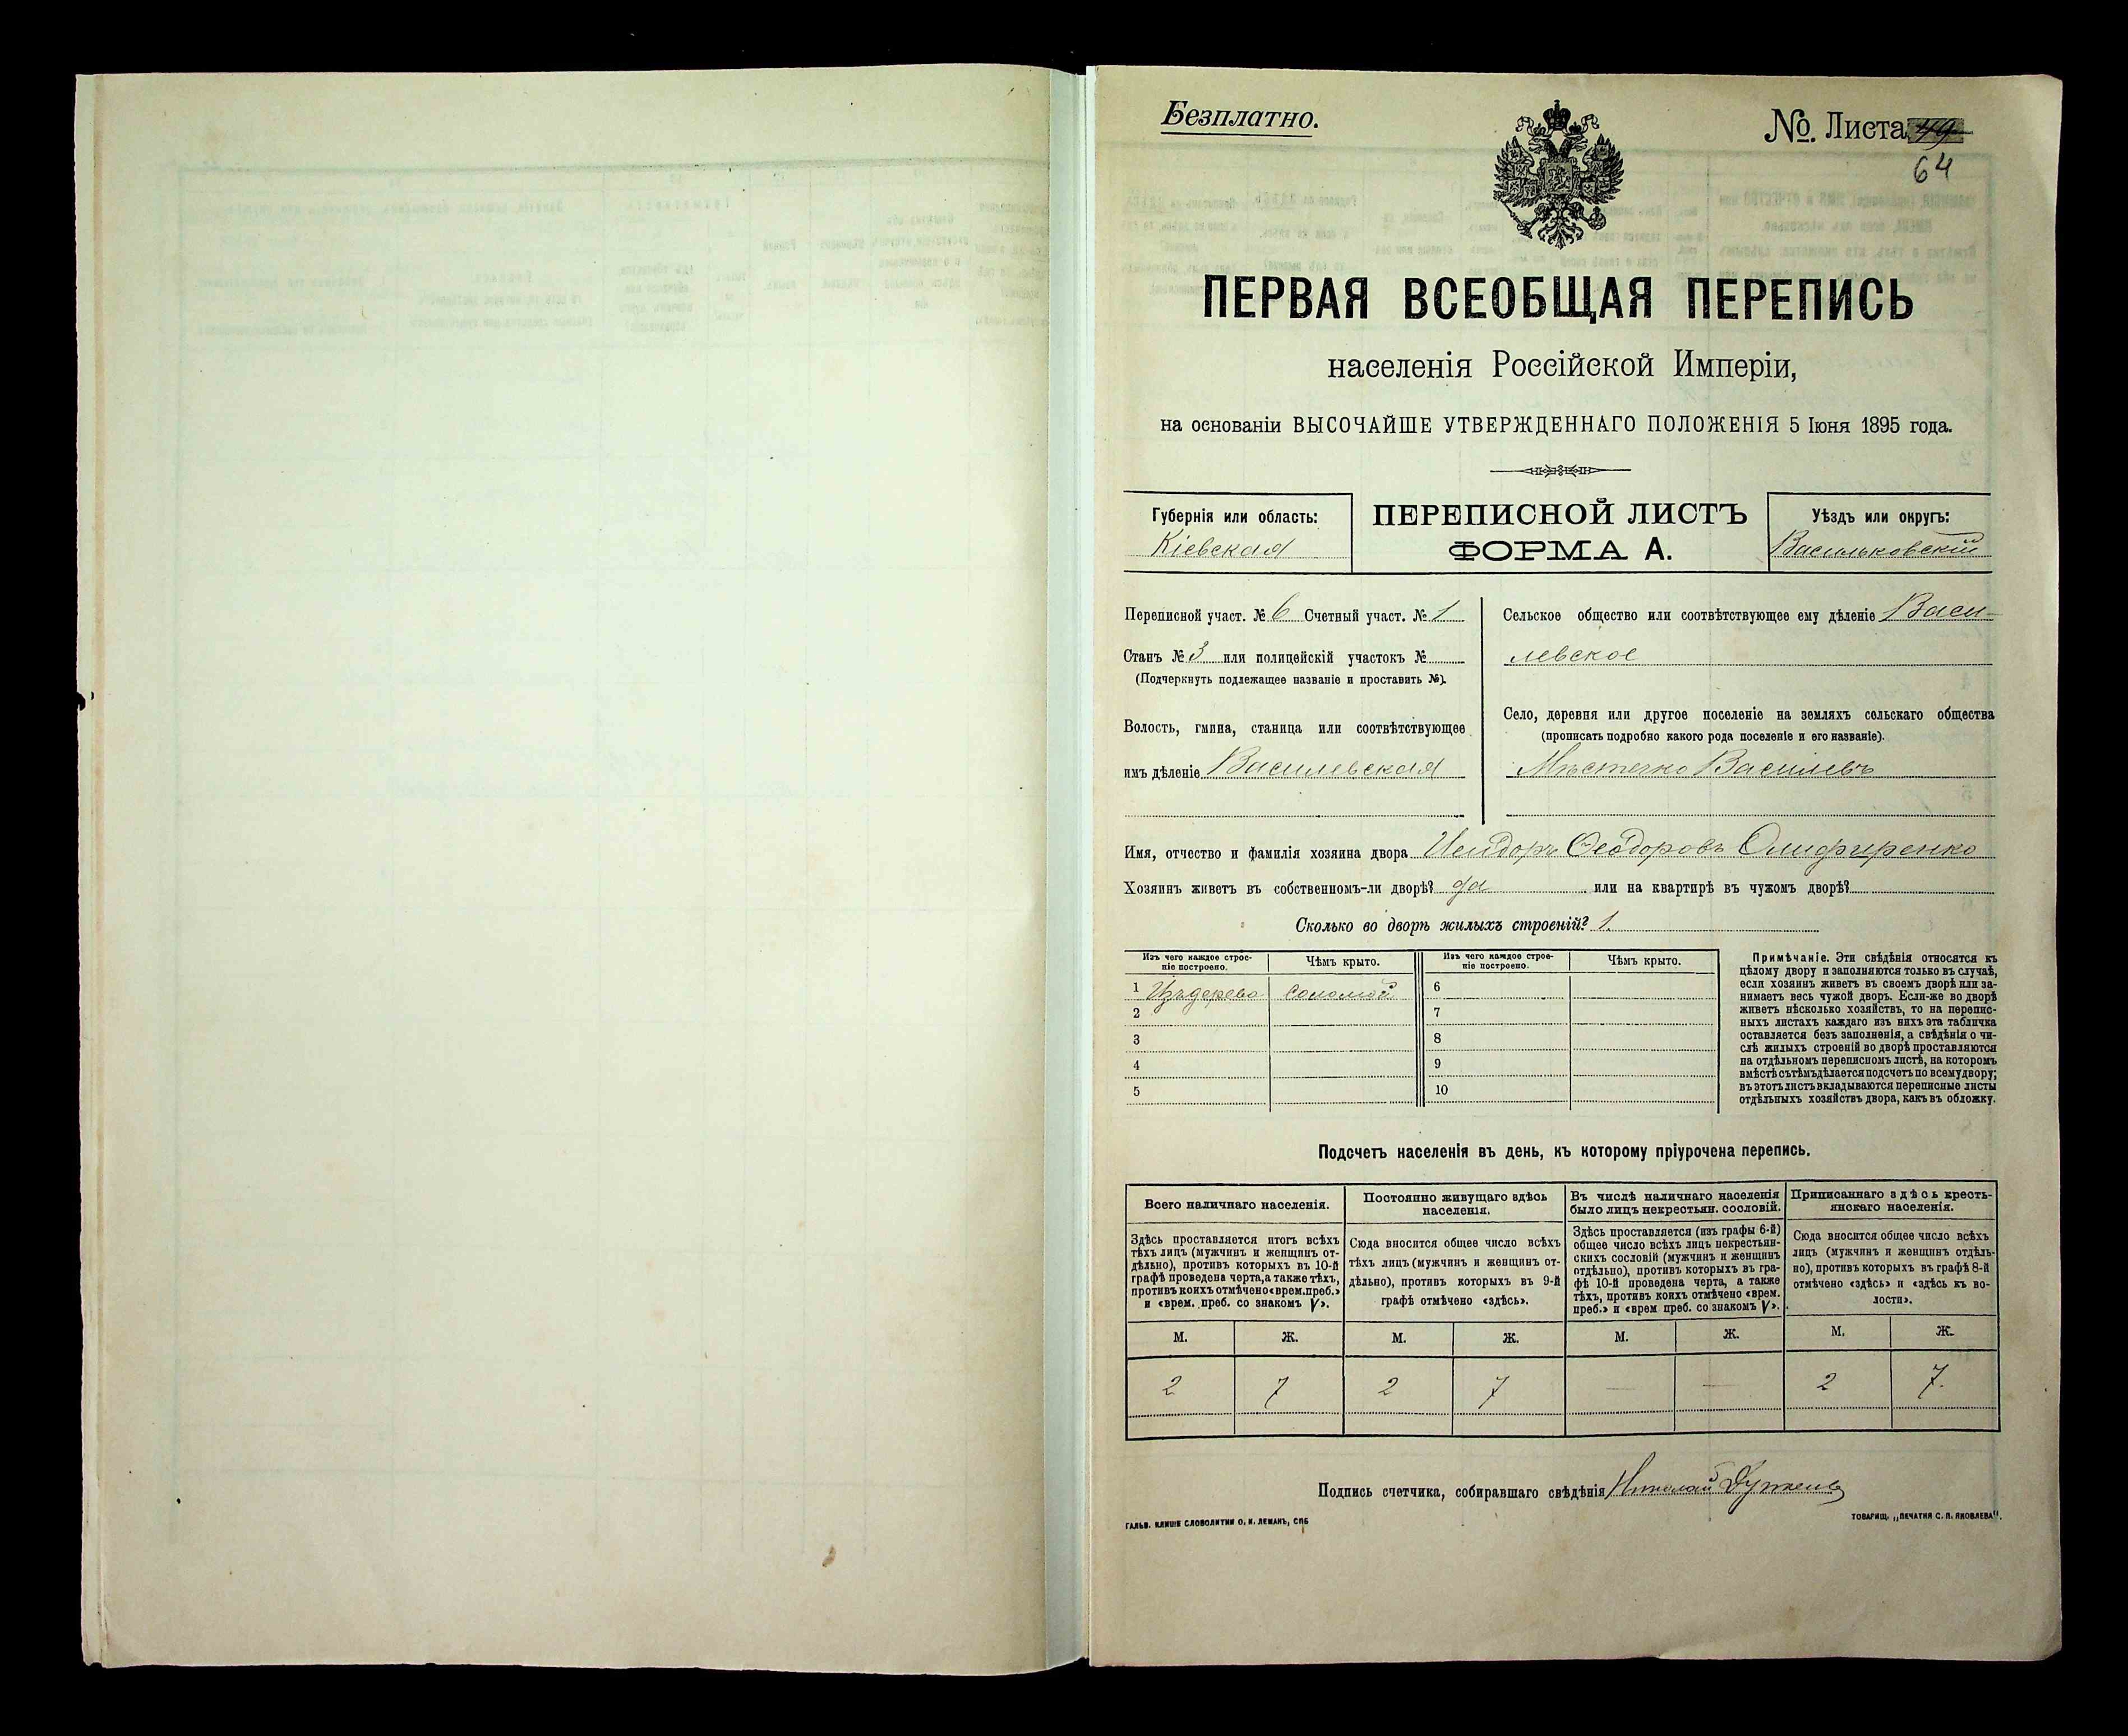 Безплатно.
№ Листа 49
64
ПЕРВАЯ ВСЕОБЩАЯ ПЕРЕПИСЬ
населенія Россійской Имперіи,
на основаніи ВЫСОЧАЙШЕ УТВЕРЖДЕННАГО ПОЛОЖЕНІЯ 5 Іюня 1895 года.
Губернія или область:
Кіевская
ПЕРЕПИСНОЙ ЛИСТЪ
ФОРМА А.
Уѣздъ или округъ:
Васильковскій
Переписной участ. № 6 Счетный участ. № 1
Станъ № 3 или полицейскій участокъ №
(Подчеркнуть подлежащее названіе и проставить №).
Волость, гмина, станица или соотвѣтствующее
имъ дѣленіе Василевская
Сельское общество или соотвѣтствующее ему дѣленіе Васи-
левское
Село, деревня или другое поселеніе на земляхъ сельскаго общества
(прописать подробно какого рода поселеніе и его названіе).
Мѣстечко Василевъ
Имя, отчество и фамилія хозяина двора Исидоръ Ѳеодоровъ Олифиренко
Хозяинъ живетъ въ собственномъ-ли дворѣ? да или на квартирѣ въ чужомъ дворѣ?
Сколько во дворѣ жилыхъ строеній? 1.
Изъ чего каждое строе-
ніе построено.
Чѣмъ крыто.
Изъ чего каждое строе-
ніе построено.
Чѣмъ крыто.
1 Изъ дерева соломой
2
3
4
5
6
7
8
9
10
Примѣчаніе. Эти свѣдѣнія относятся къ
цѣлому двору и заполняются только въ случаѣ,
если хозяинъ живетъ въ своемъ дворѣ или за-
нимаетъ весь чужой дворъ. Если-же во дворѣ
живетъ нѣсколько хозяйствъ, то на перепис-
ныхъ листахъ каждаго изъ нихъ эта табличка
оставляется безъ заполненія, а свѣдѣнія о чи-
слѣ жилыхъ строеній во дворѣ проставляются
на отдѣльномъ переписномъ листѣ, на которомъ
вмѣстѣ съ тѣмъ дѣлается подсчетъ по всему двору;
въ этотъ листъ вкладываются переписные листы
отдѣльныхъ хозяйствъ двора, какъ въ обложку.
Подсчетъ населенія въ день, къ которому пріурочена перепись.
Всего наличнаго населенія.
Здѣсь проставляется итогъ всѣхъ
тѣхъ лицъ (мужчинъ и женщинъ от-
дѣльно), противъ которыхъ въ 10-й
графѣ проведена черта, а также тѣхъ,
противъ коихъ отмѣчено «врем. преб.»
и «врем. преб. со знакомъ V».
Постоянно живущаго здѣсь
населенія.
Сюда вносится общее число всѣхъ
тѣхъ лицъ (мужчинъ и женщинъ от-
дѣльно), противъ которыхъ въ 9-й
графѣ отмѣчено «здѣсь».
Въ числѣ наличнаго населенія
было лицъ некрестьян. сословій.
Здѣсь проставляется (изъ графы 6-й)
общее число всѣхъ лицъ некрестьян-
скихъ сословій (мужчинъ и женщинъ
отдѣльно), противъ которыхъ въ гра-
фѣ 10-й проведена черта, а также
тѣхъ, противъ коихъ отмѣчено «врем.
преб.» и «врем преб. со знакомъ V».
Приписаннаго здѣсь кресть-
янскаго населенія.
Сюда вносится общее число всѣхъ
лицъ (мужчинъ и женщинъ отдѣль-
но), противъ которыхъ въ графѣ 8-й
отмѣчено «здѣсь» и «здѣсь къ во-
лости».
М. Ж. М. Ж. М. Ж. М. Ж.
2 7 2 7 — — 2 7.
Подпись счетчика, собиравшаго свѣдѣнія Николай
ГАЛЬВ. КЛИШЕ СЛОВОЛИТНИ О. И. ЛЕМАНЪ, СПБ
ТОВАРИЩ. „ПЕЧАТНЯ С. П. ЯКОВЛЕВА".